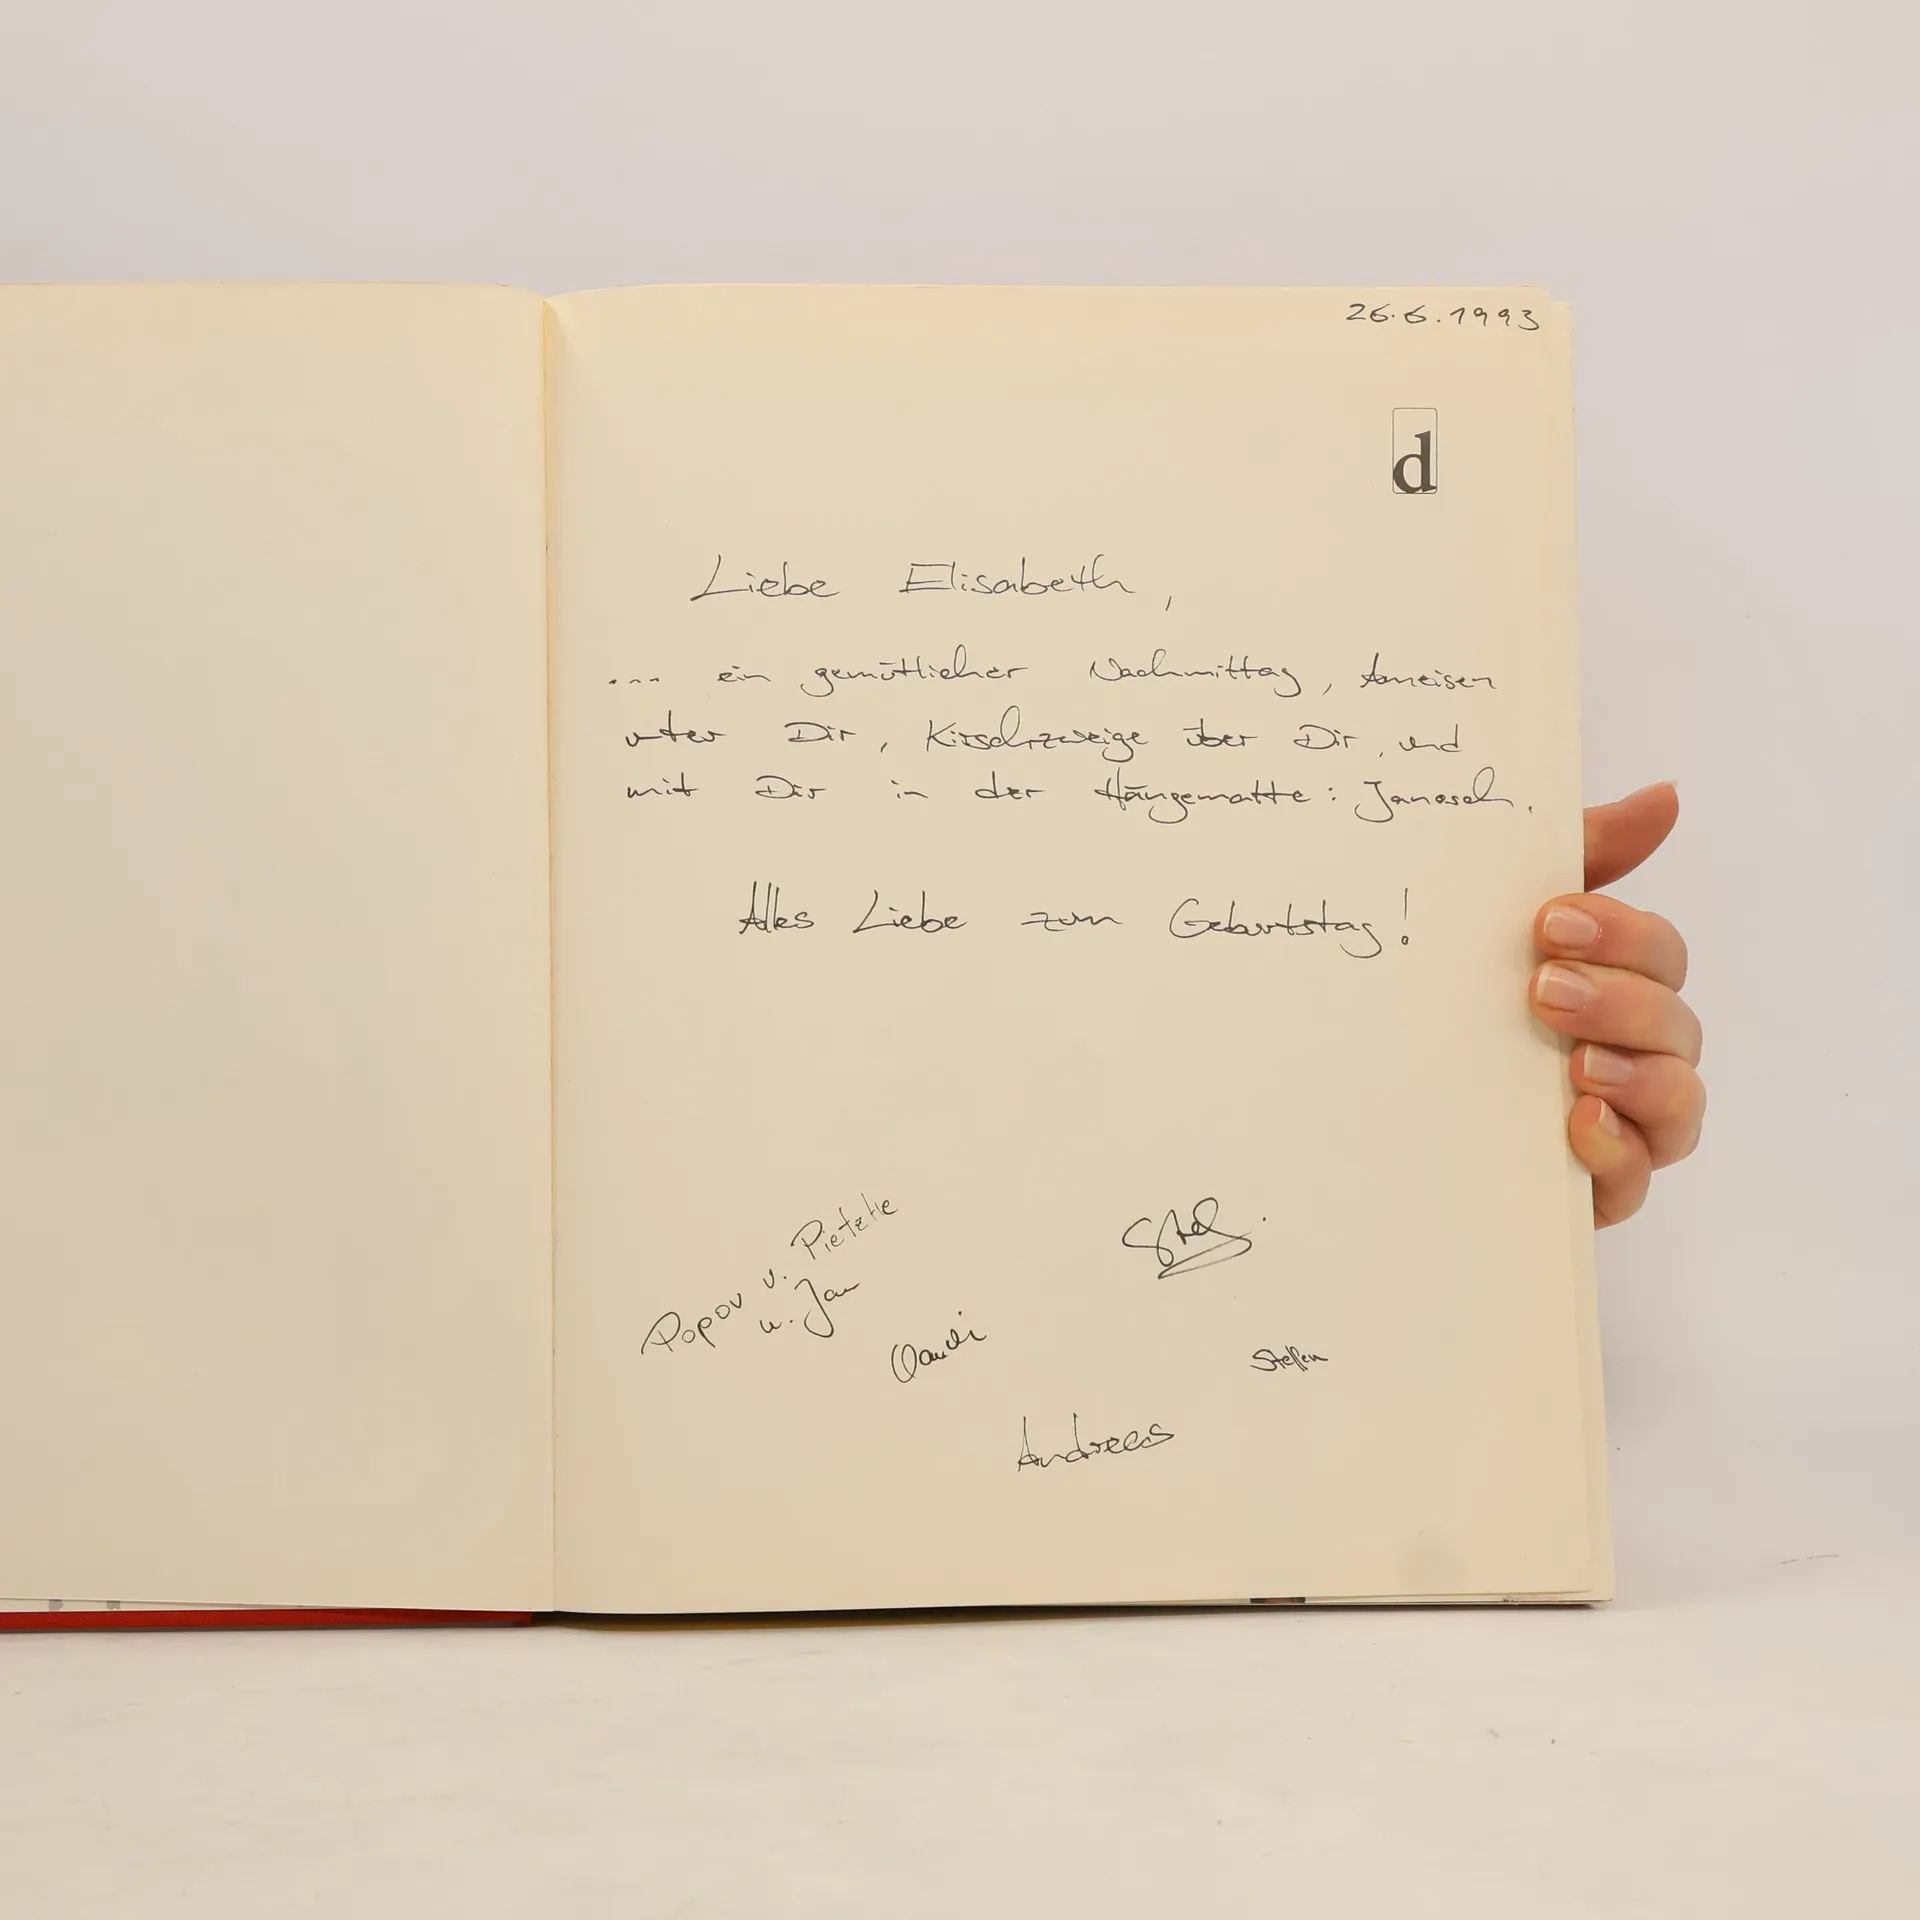 26.6.1993
d
Liebe Elisabeth,
... ein gemütlicher Nachmittag, Ameisen
unter Dir, Kirschzweige über Dir, und
mit Dir in der Hängematte: Janosch.
Alles Liebe zum Geburtstag!
Popov v. Pietzke
u. Jan
Steffen
Andreas